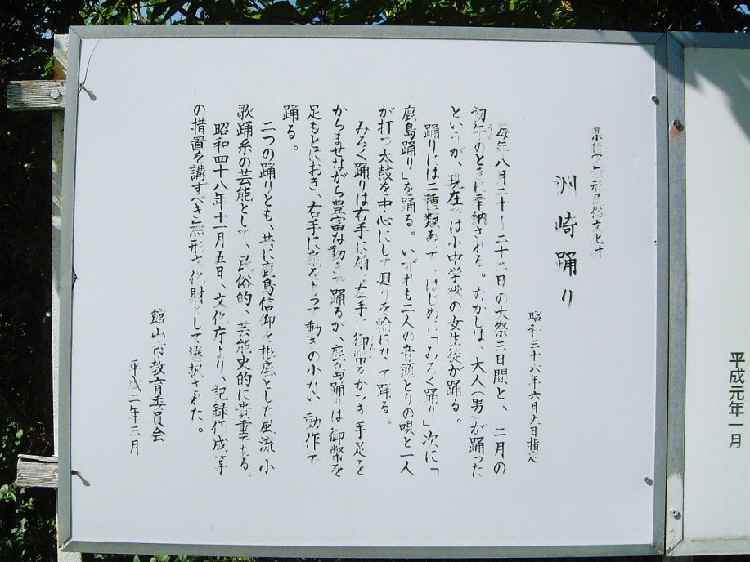 洲崎踊り
昭和三十六年六月九日指定
毎年八月二十～二十二日の大祭三日間と、二月の
初午のときに奉納される。むかしは、大人(男)が踊った
というが、現在では小中学校の女生徒が踊る。
踊りには二種類あって、はじめに「みろく踊り」次に「
鹿島踊り」を踊る。いずれも二人の音頭とりの唄と一人
が打つ太鼓を中心にして廻りを輪になって踊る。
みろく踊りは右手に扇、左手に御幣をかつぎ手足を
からませながら豊富な動きで踊るが、鹿島踊りは御幣を
足もとにおき、右手に扇をもって動きの小さい動作で
踊る。
二つの踊りとも、共に鹿島信仰を基底とした風流小
歌踊系の芸能として、民俗的、芸能史的に貴重である。
昭和四十八年十一月五日、文化庁より、記録作成等
の措置を講ずべき無形文化財として選択された。
館山市教育委員会
平成二年三月
平成元年一月